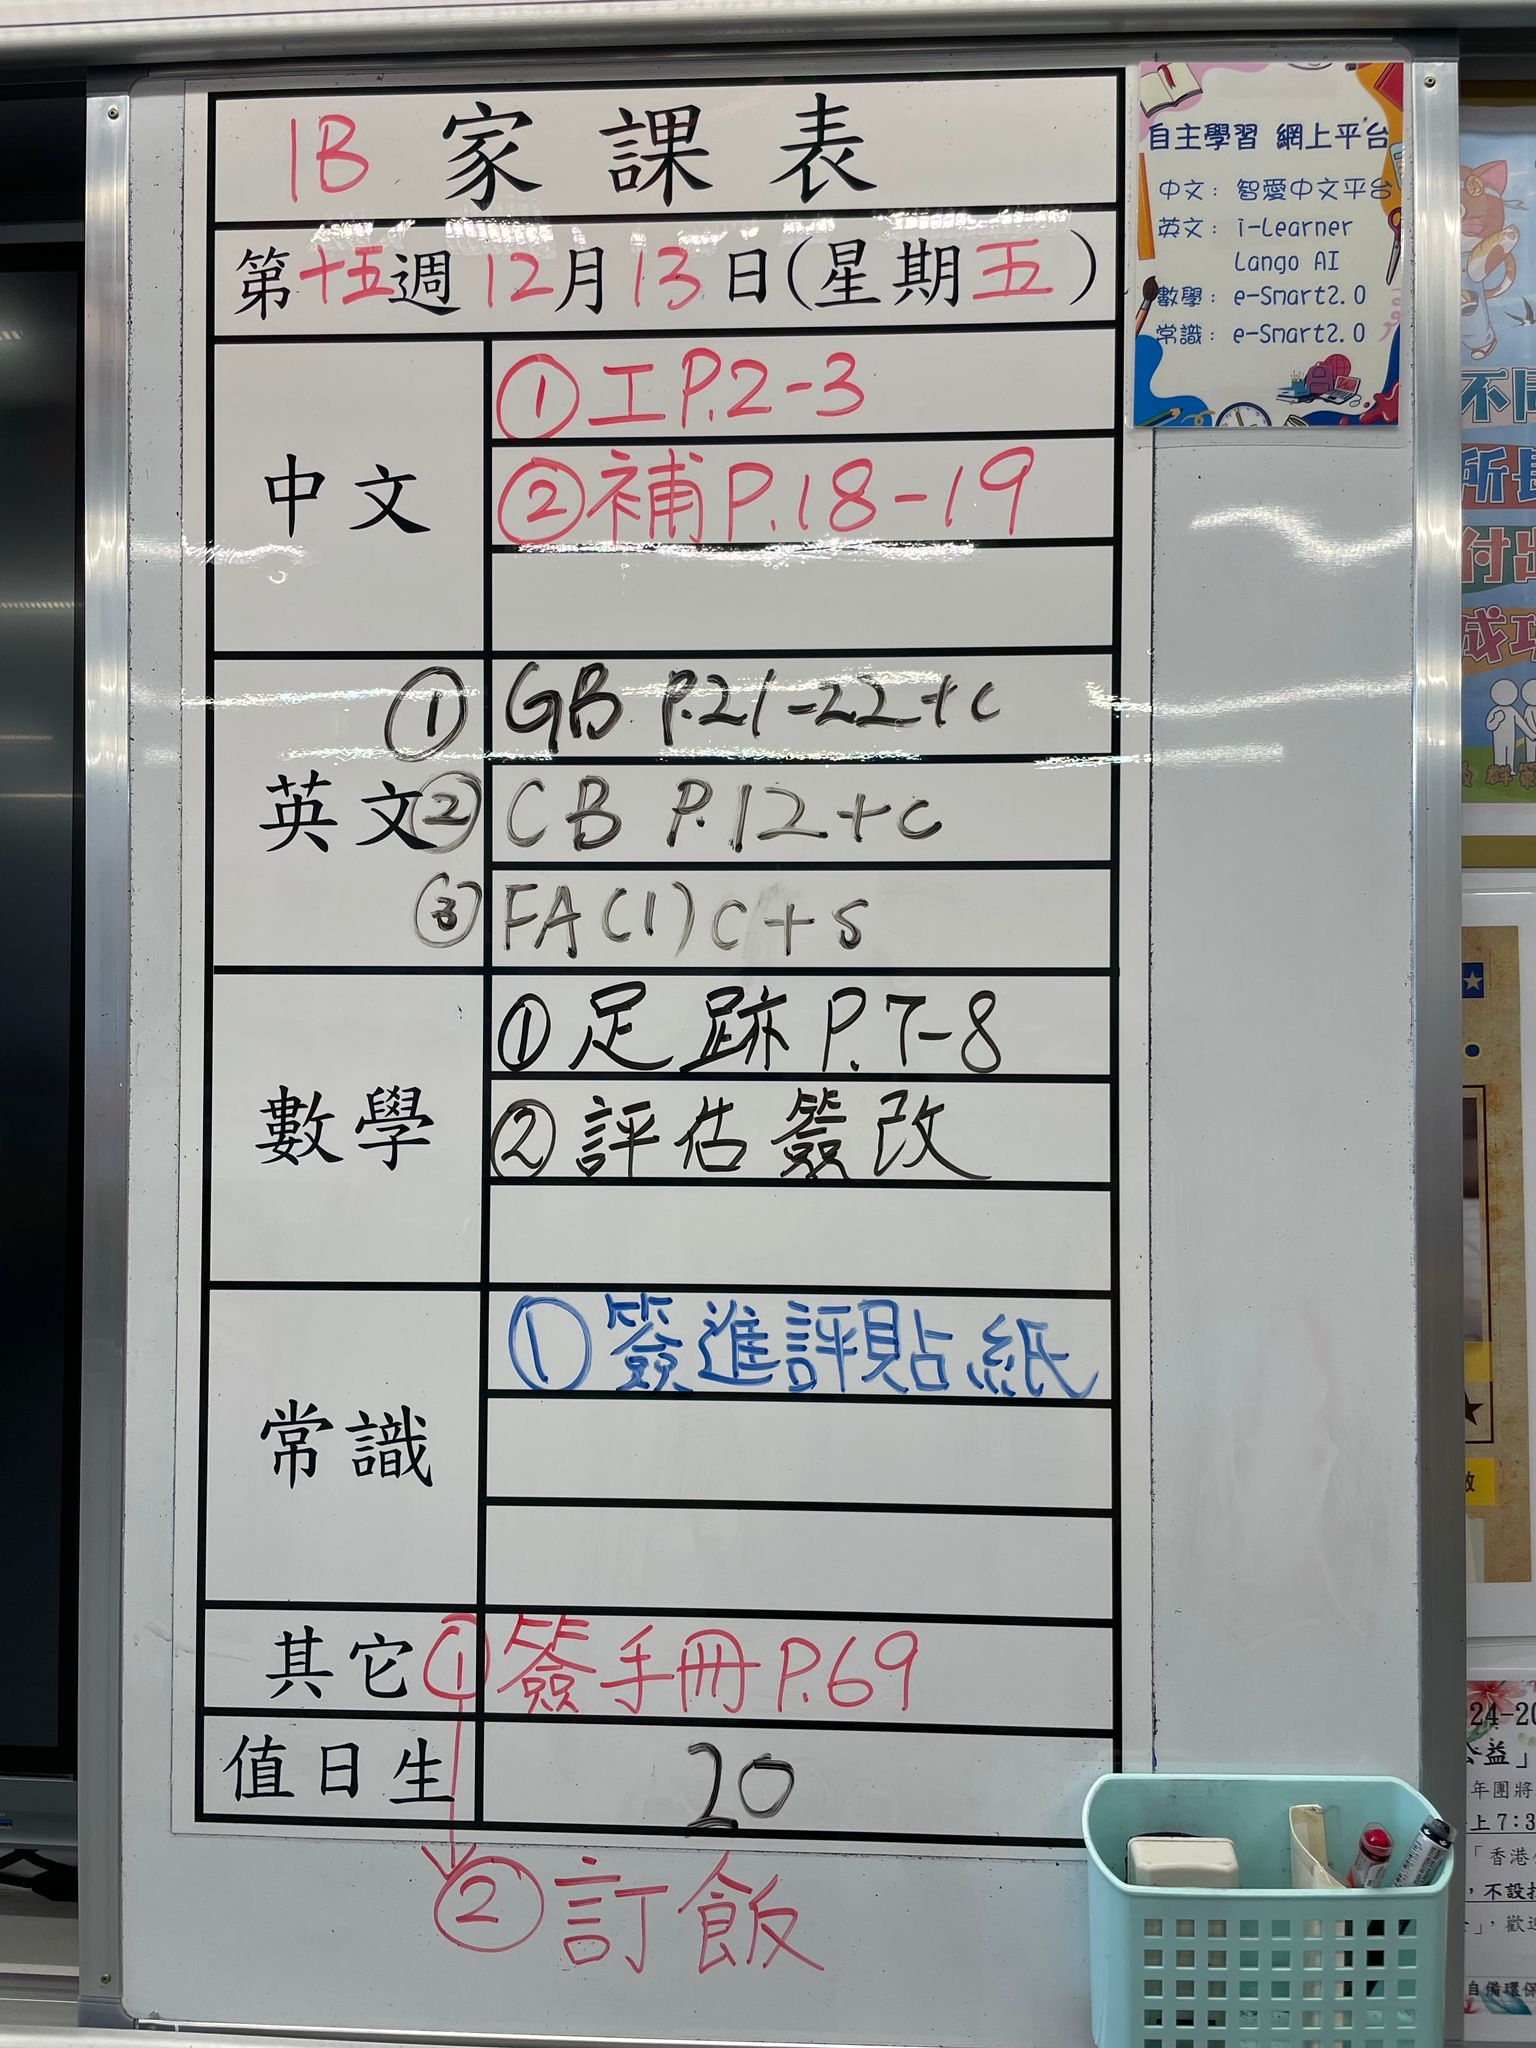 1B 家課表
第十五週12月13日(星期五)
中文
①工P.2-3
②補P.18-19
英文
①GB P.21-22+c
②CB P.12+c
③FA(1)c+s
數學
①足跡P.7-8
②評估簽改
常識
①簽進評貼紙
其它
①簽手冊P.69
值日生
20
②訂飯
自主學習 網上平台
中文：智愛中文平台
英文：i-Learner
Lango AI
數學：e-Smart2.0
常識：e-Smart2.0
不同
所長
付出
成功
24-20
公益」
年團將
上7:3
「香港
，不設
」，歡迎
自備環保